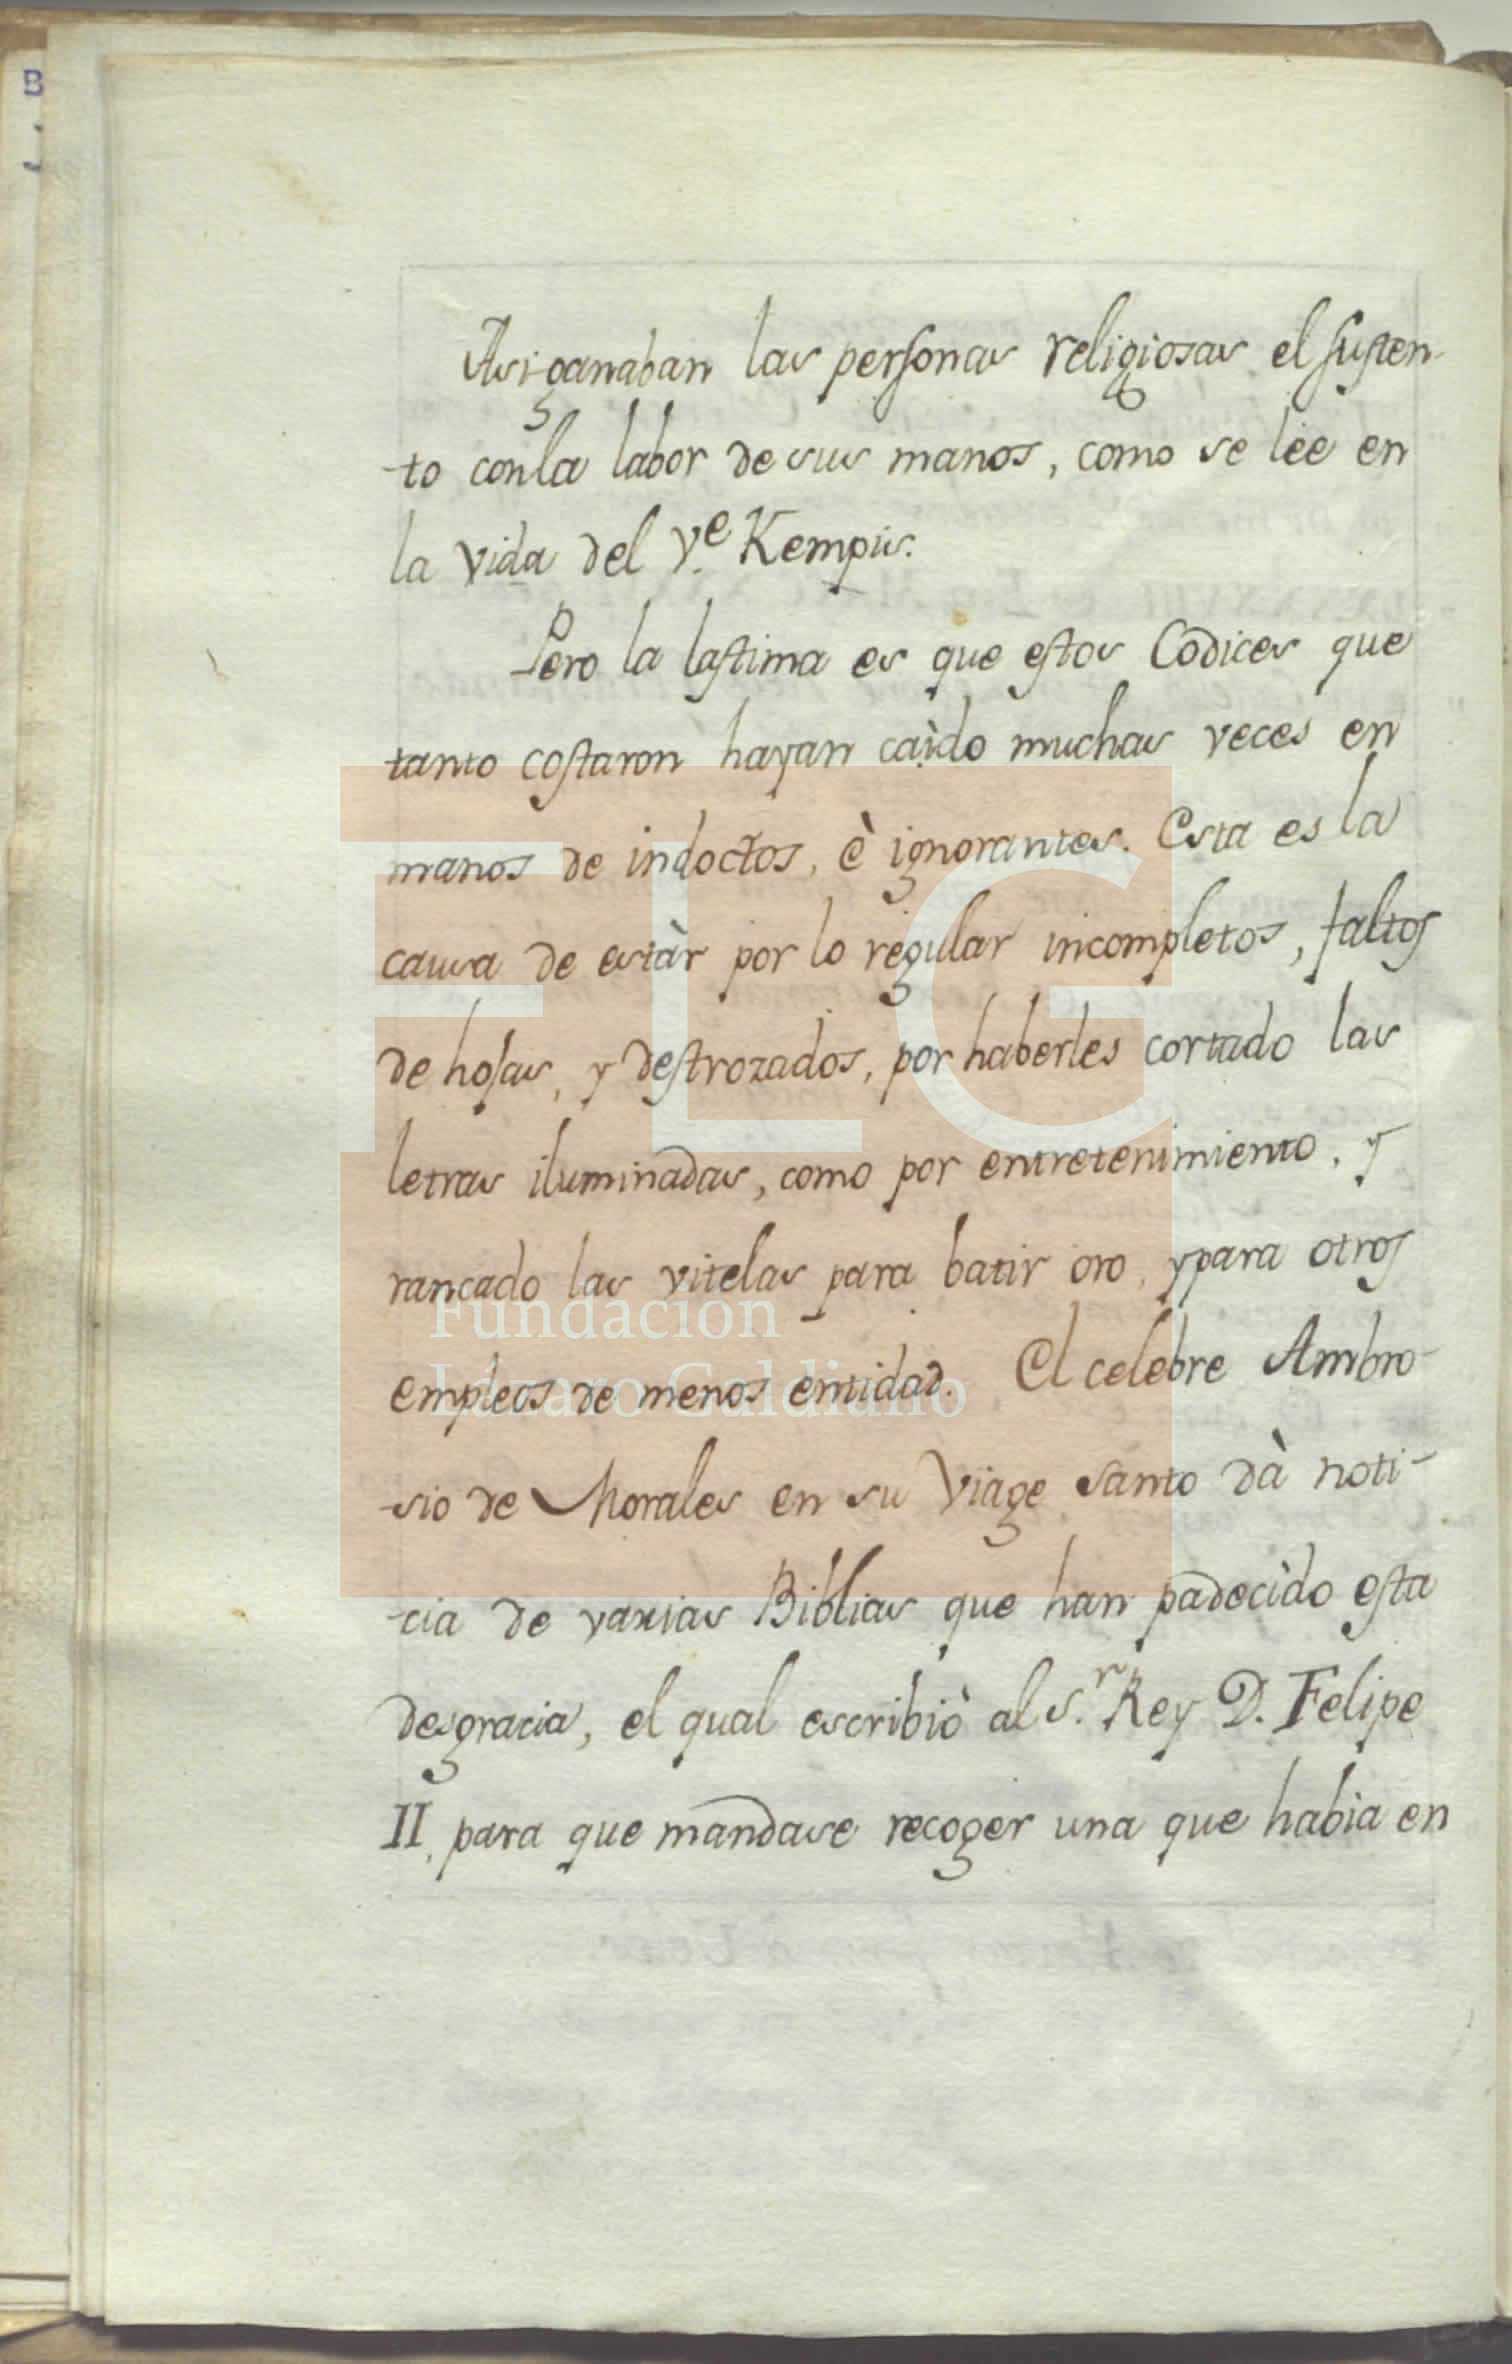 Asi ganaban las personas religiosas el susten-
-to con la labor de sus manos, como se lèe en
la vida del V.e Kempis.
Pero la lastima es que estos Codices que
tanto costaron hayan caìdo muchas veces en
manos de indoctos, è ignorantes. Esta es la
causa de estàr por lo regular incompletos, faltos
de hojas, y destrozados, por haberles cortado las
letras iluminadas, como por entretenimiento, y
rancado las vitelas para batir oro, y para otros
empleos de menos entidad. El celebre Ambro-
-sio de Morales en su Viage Santo dà noti-
-cia de varias Biblias que han padecido esta
desgracia, el qual escribiò al S.r Rey D. Felipe
II. para que mandase recoger una que habia en
FLG
Fundación
Lázaro Galdiano
B